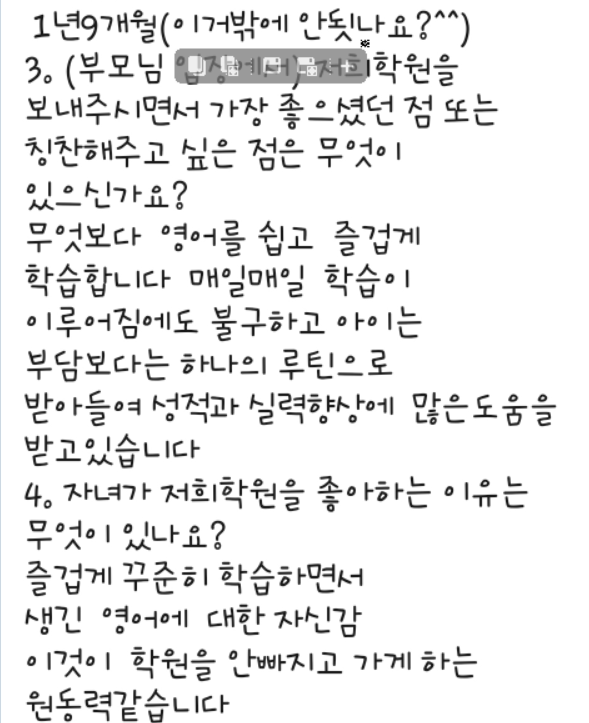 1년9개월(이거밖에 안됫나요?^^)
3. (부모님 입장에서) 저희학원을
보내주시면서 가장 좋으셨던 점 또는
칭찬해주고 싶은 점은 무엇이
있으신가요?
무엇보다 영어를 쉽고 즐겁게
학습합니다 매일매일 학습이
이루어짐에도 불구하고 아이는
부담보다는 하나의 루틴으로
받아들여 성적과 실력향상에 많은도움을
받고있습니다
4. 자녀가 저희학원을 좋아하는 이유는
무엇이 있나요?
즐겁게 꾸준히 학습하면서
생긴 영어에 대한 자신감
이것이 학원을 안빠지고 가게 하는
원동력같습니다